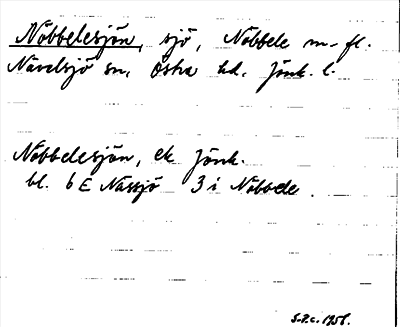 Nöbbelesjön, sjö, Nöbbele m. fl.
Nävelsjö sn, Östra hd, Jönk. l.
Nöbbelesjön, ek Jönk.
bl. 6 E Nässjö 3 i Nöbbele.